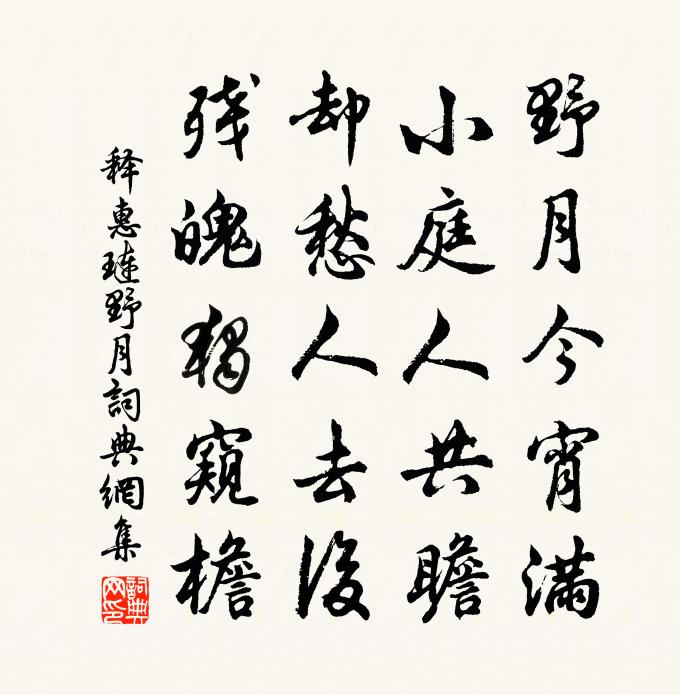 野月今宵满
小庭人共瞻
却愁人去後
残魄独窥檐
释惠琏野月詞典網集
詞典网印